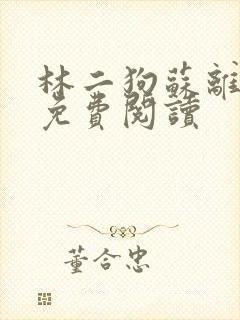 林二狗蘇離
免費閱讀
董合忠